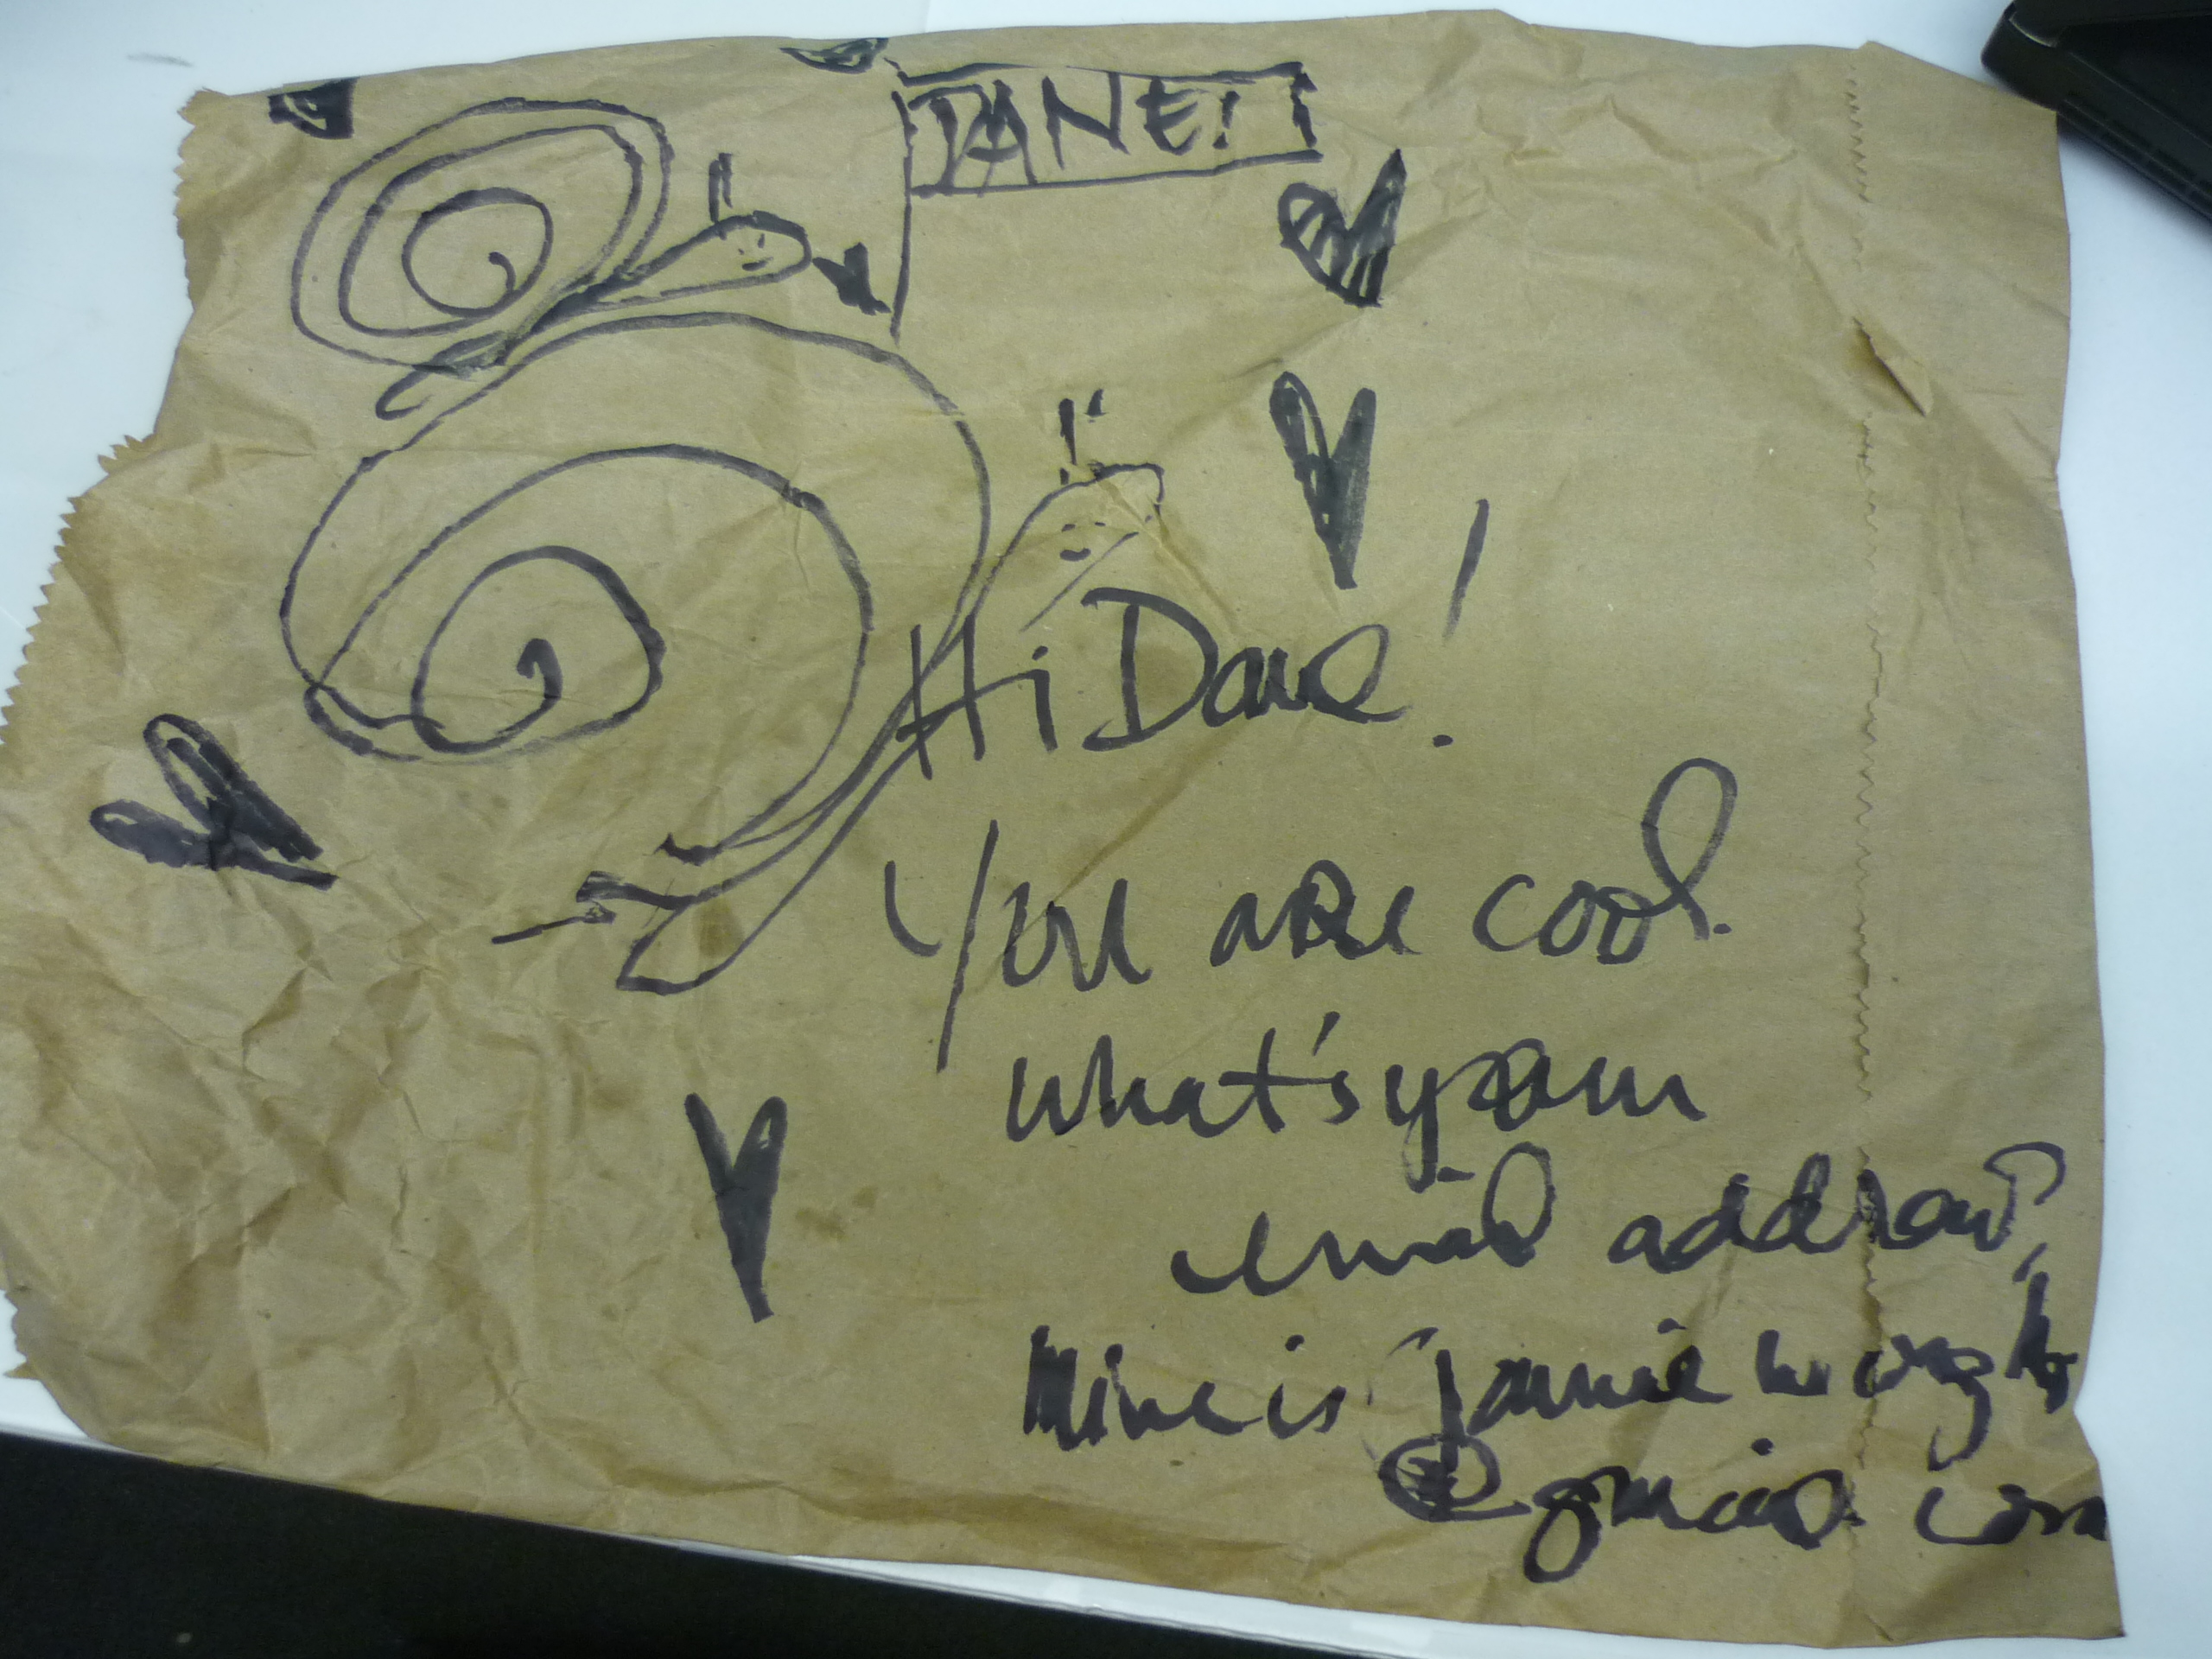 JANE!
Hi Dave!
You are cool.
What's your
email address?
Mine is jamie
@gmail.com